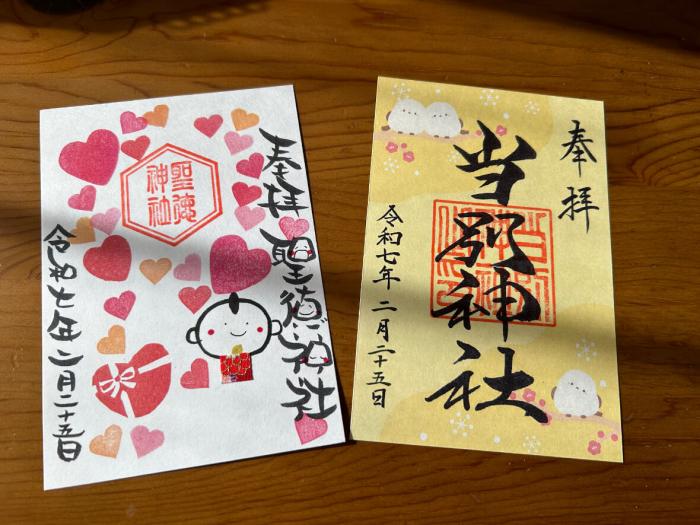 奉拝
聖徳神社
聖徳
神社
令和七年二月二十五日
奉拝
当別神社
令和七年二月二十五日